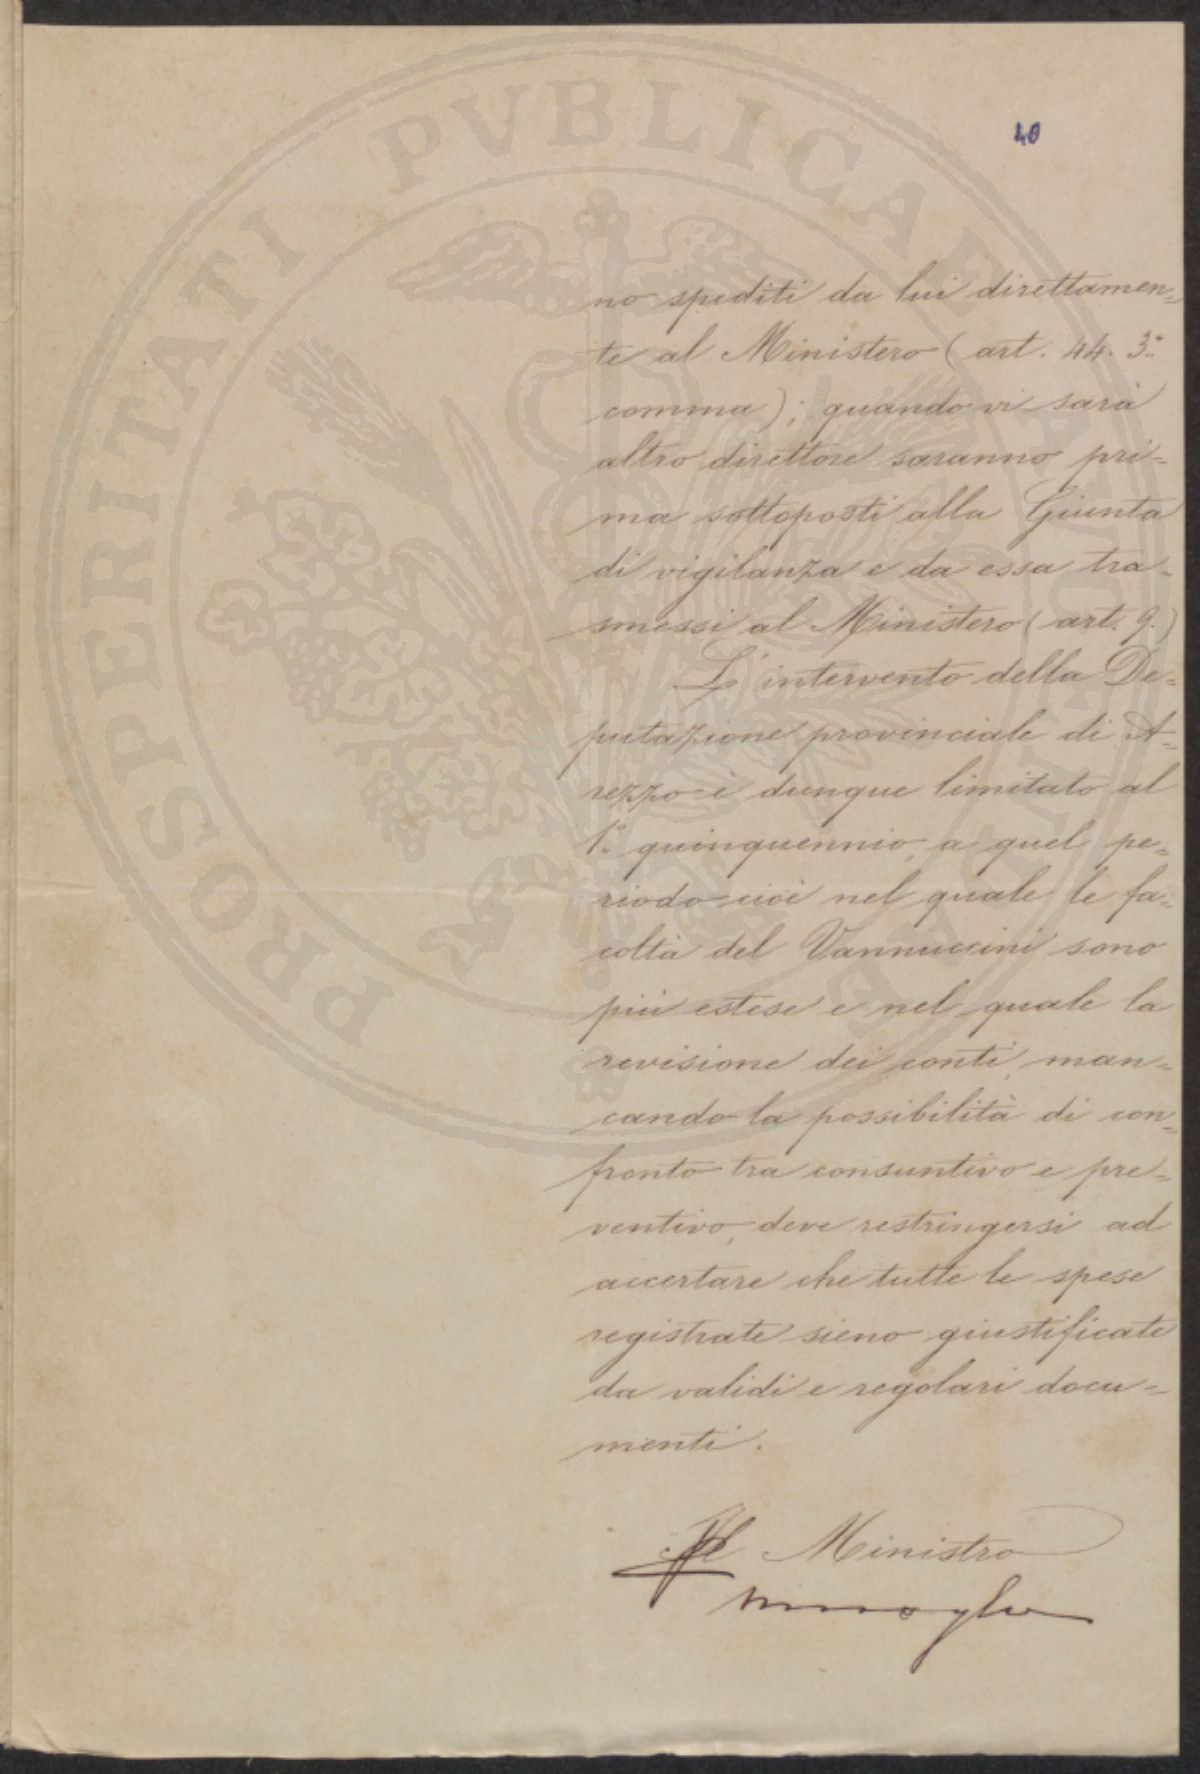 40
no spediti da lui direttamen=
te al Ministero (art. 44. 3.°
comma); quando vi sarà
altro direttore saranno pri=
ma sottoposti alla Giunta
di vigilanza e da essa tra=
smessi al Ministero (art. 9.)
L'intervento della De=
putazione provinciale di A=
rezzo è dunque limitato al
1.° quinquennio, a quel pe=
riodo cioè nel quale le fa=
coltà del Vannuccini sono
più estese e nel quale la
revisione dei conti, man=
cando la possibilità di con=
fronto tra consuntivo e pre=
ventivo, deve restringersi ad
accertare che tutte le spese
registrate sieno giustificate
da validi e regolari docu=
menti.
Il Ministro
PROSPERITATI PVBLICAE